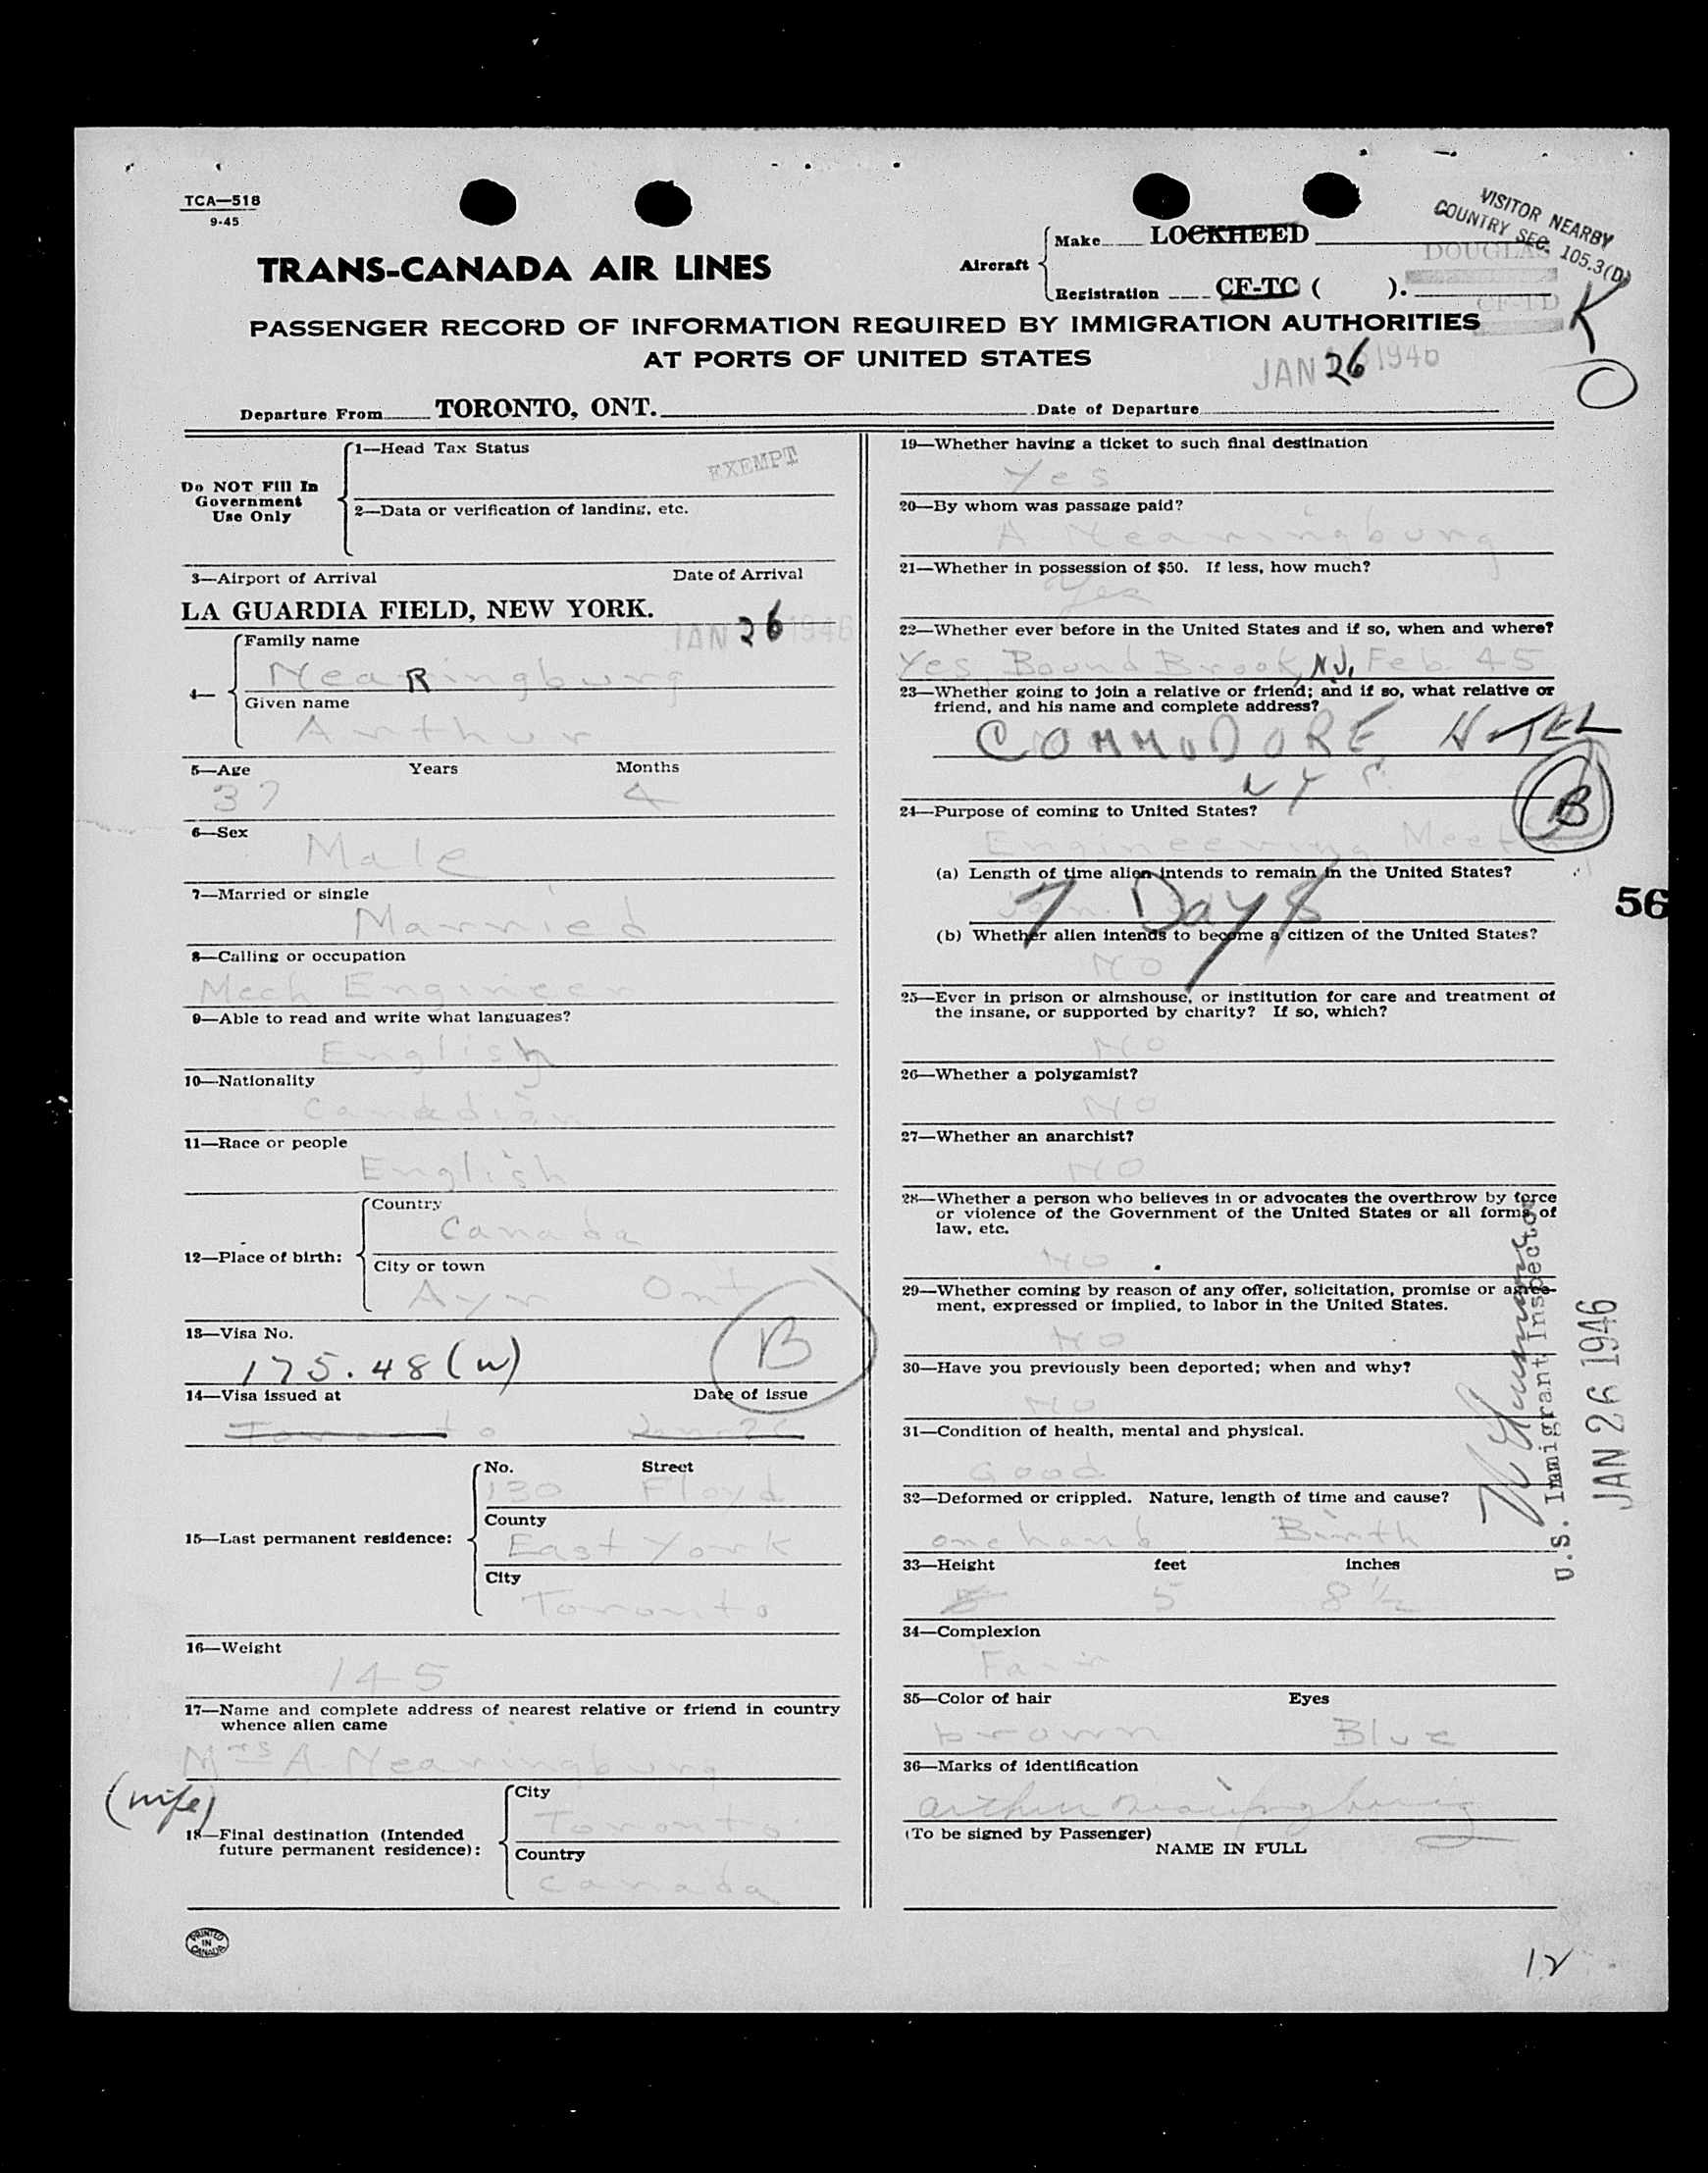 TCA—518
9-45
VISITOR NEARBY
COUNTRY SEC. 105.3(D)
TRANS-CANADA AIR LINES
Aircraft
Make LOCKHEED
DOUGLAS
Registration CF-TC ( ).
CF-TD
K
O
PASSENGER RECORD OF INFORMATION REQUIRED BY IMMIGRATION AUTHORITIES
AT PORTS OF UNITED STATES
JAN 26 1946
Departure From TORONTO, ONT. Date of Departure
Do NOT Fill In
Government
Use Only
1—Head Tax Status
EXEMPT
2—Data or verification of landing, etc.
3—Airport of Arrival Date of Arrival
LA GUARDIA FIELD, NEW YORK.
JAN 26 1946
4—
Family name
NeaRingburg
Given name
Arthur
5—Age Years Months
37 4
6—Sex
Male
7—Married or single
Married
8—Calling or occupation
Mech Engineer
9—Able to read and write what languages?
English
10—Nationality
Canadian
11—Race or people
English
12—Place of birth:
Country
Canada
City or town
Ayr Ont
13—Visa No.
175.48 (W)
B
14—Visa issued at Date of issue
Toronto Jan 26
15—Last permanent residence:
No. Street
130 Floyd
County
East York
City
Toronto
16—Weight
145
17—Name and complete address of nearest relative or friend in country
whence alien came
Mrs A. Nearingburg
(wife)
18—Final destination (Intended
future permanent residence):
City
Toronto
Country
Canada
PRINTED
IN
CANADA
19—Whether having a ticket to such final destination
Yes
20—By whom was passage paid?
A Nearingburg
21—Whether in possession of $50. If less, how much?
Yes
22—Whether ever before in the United States and if so, when and where?
Yes, Bound Brook, NJ, Feb. 45
23—Whether going to join a relative or friend; and if so, what relative or
friend, and his name and complete address?
COMMODORE HOTEL
NYC
B
24—Purpose of coming to United States?
Engineering Meeting
(a) Length of time alien intends to remain in the United States?
7 Days
56
(b) Whether alien intends to become a citizen of the United States?
NO
25—Ever in prison or almshouse, or institution for care and treatment of
the insane, or supported by charity? If so, which?
NO
26—Whether a polygamist?
NO
27—Whether an anarchist?
NO
28—Whether a person who believes in or advocates the overthrow by force
or violence of the Government of the United States or all forms of
law, etc.
NO
29—Whether coming by reason of any offer, solicitation, promise or agree-
ment, expressed or implied, to labor in the United States.
NO
30—Have you previously been deported; when and why?
NO
31—Condition of health, mental and physical.
Good
32—Deformed or crippled. Nature, length of time and cause?
one hand Birth
33—Height feet inches
5 8½
34—Complexion
Fair
35—Color of hair Eyes
brown Blue
36—Marks of identification
Arthur Nearingburg
(To be signed by Passenger)
NAME IN FULL
U.S. Immigrant Inspector
JAN 26 1946
12